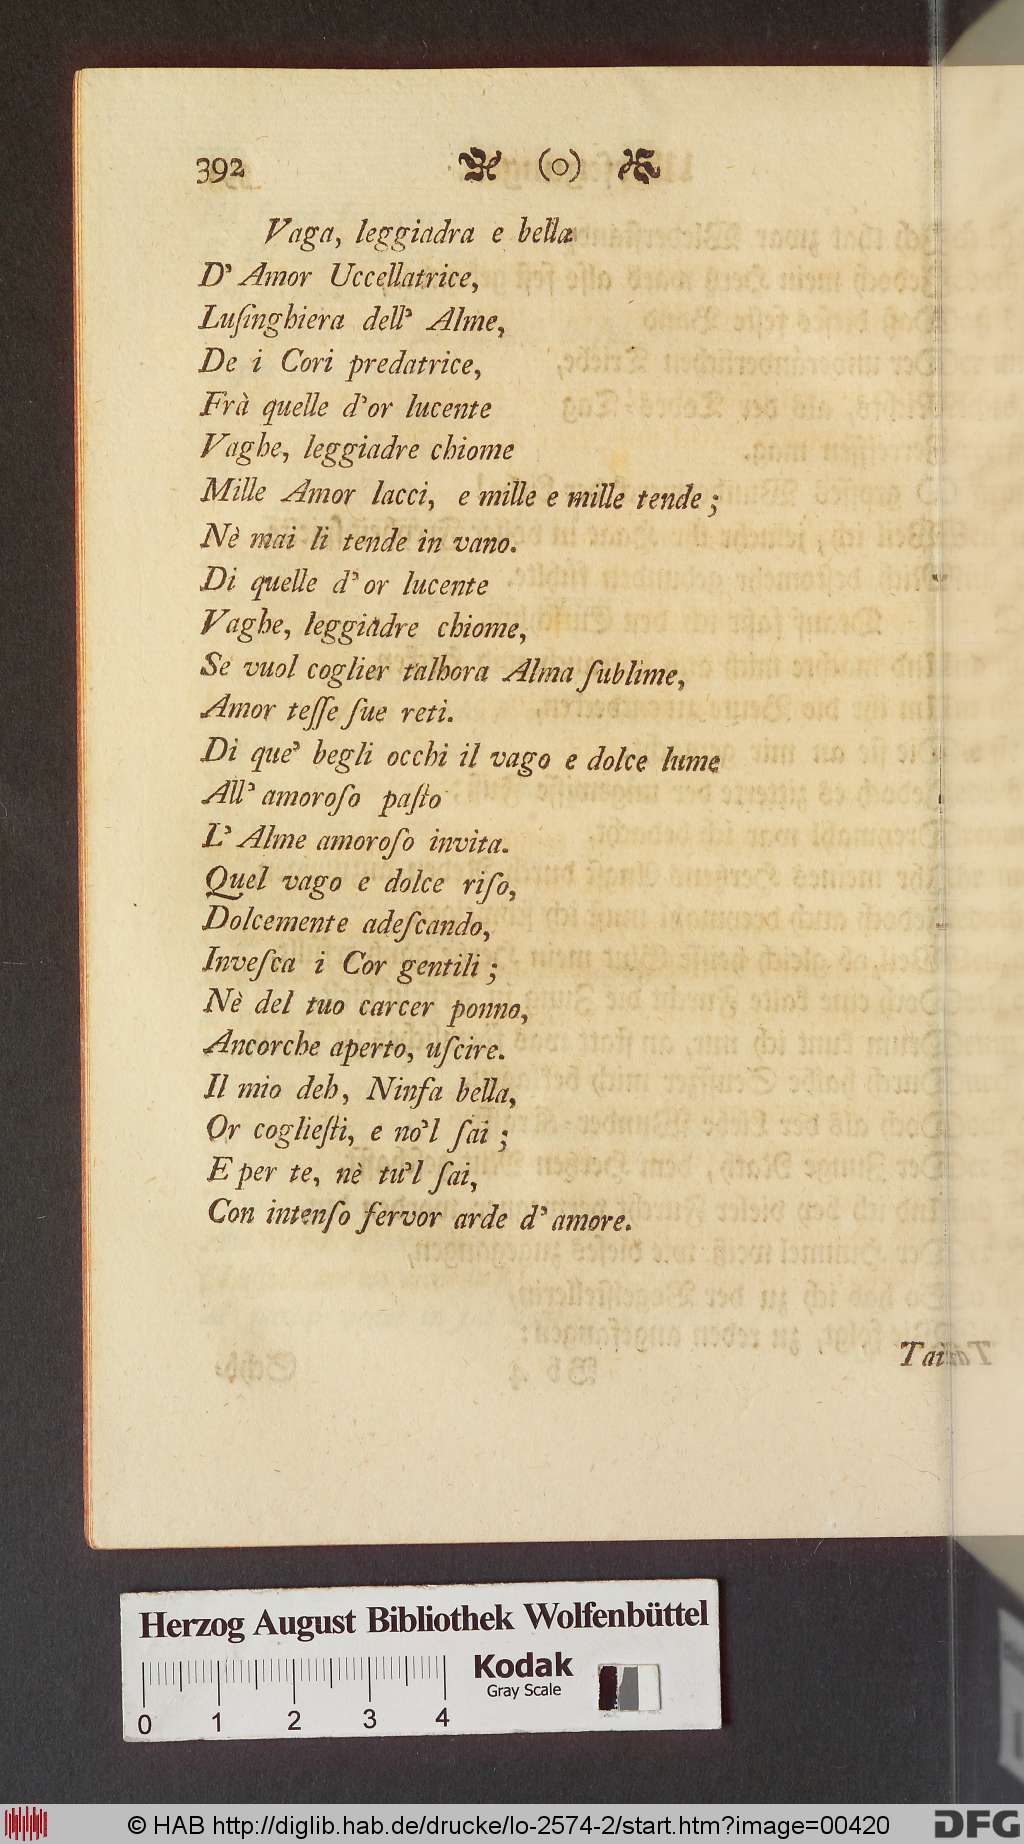 392 (o)
Vaga, leggiadra e bella
D' Amor Uccellatrice,
Luſinghiera dell' Alme,
De i Cori predatrice,
Frà quelle d'or lucente
Vaghe, leggiadre chiome
Mille Amor lacci, e mille e mille tende;
Nè mai li tende in vano.
Di quelle d'or lucente
Vaghe, leggiadre chiome,
Se vuol coglier talhora Alma ſublime,
Amor teſſe ſue reti.
Di que' begli occhi il vago e dolce lume
All' amoroſo paſto
L' Alme amoroſo invita.
Quel vago e dolce riſo,
Dolcemente adeſcando,
Inveſca i Cor gentili;
Nè del tuo carcer ponno,
Ancorche aperto, uſcire.
Il mio deh, Ninfa bella,
Or coglieſti, e no'l ſai;
E per te, nè tu'l ſai,
Con intenſo fervor arde d'amore.
Herzog August Bibliothek Wolfenbüttel
Kodak
Gray Scale
0 1 2 3 4
© HAB http://diglib.hab.de/drucke/lo-2574-2/start.htm?image=00420 DFG